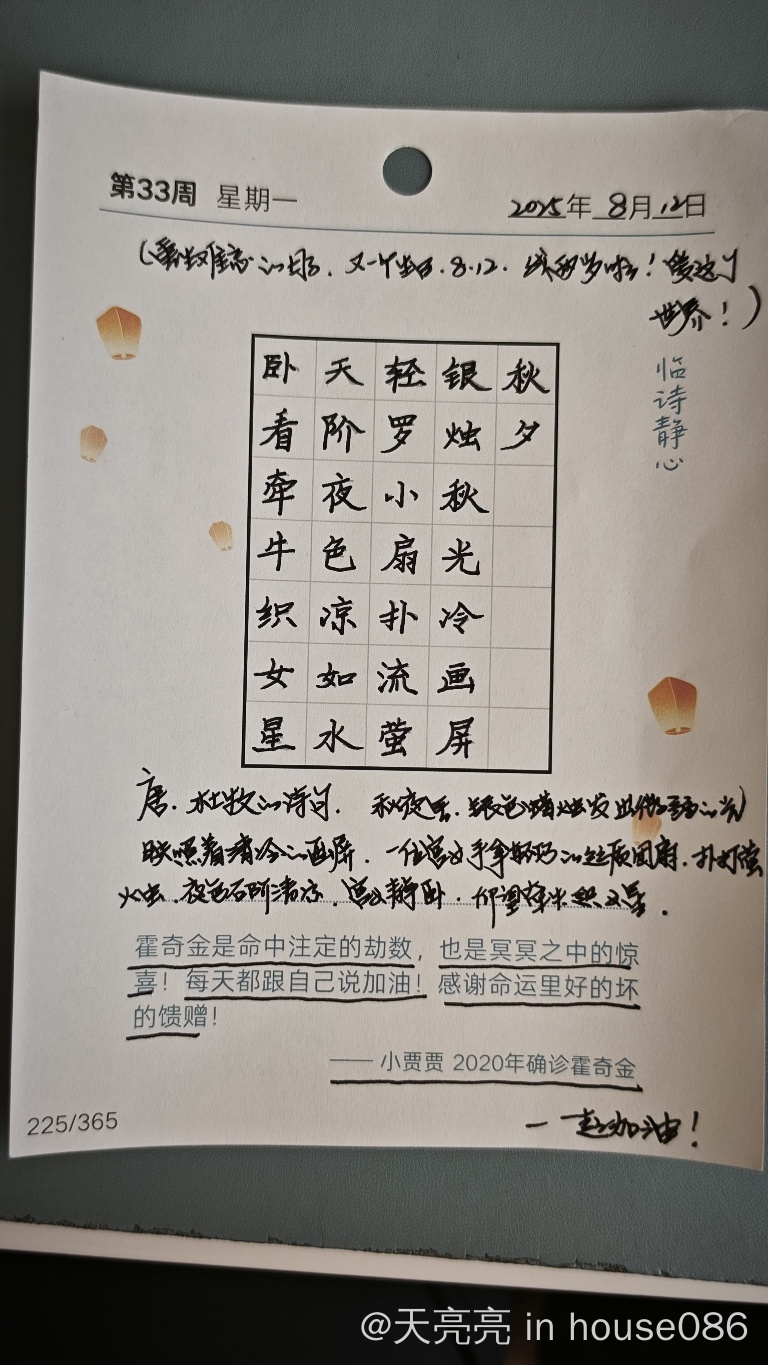 第33周 星期一
2025年 8月12日
又一个生日.8.12.
世界！）
临诗静心
秋夕
银烛秋光冷画屏
轻罗小扇扑流萤
天阶夜色凉如水
卧看牵牛织女星
唐.杜牧的诗句. 秋夜里.银色蜡烛发出微弱的光
映照着清冷的画屏.一位宫女手拿轻巧的丝质团扇.扑打萤
火虫.夜色石阶清凉.宫女静卧.仰望牵牛织女星.
霍奇金是命中注定的劫数，也是冥冥之中的惊
喜！每天都跟自己说加油！感谢命运里好的坏
的馈赠！
—— 小贾贾 2020年确诊霍奇金
一一起加油！
225/365
@天亮亮 in house086